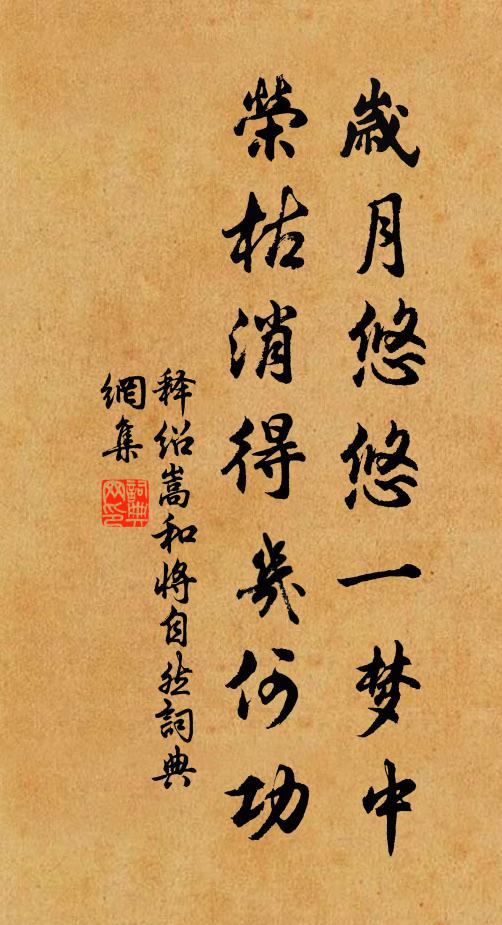 歲月悠悠一梦中
榮枯消得幾何功
释绍嵩和将自然詞典
網集
詞典
网印